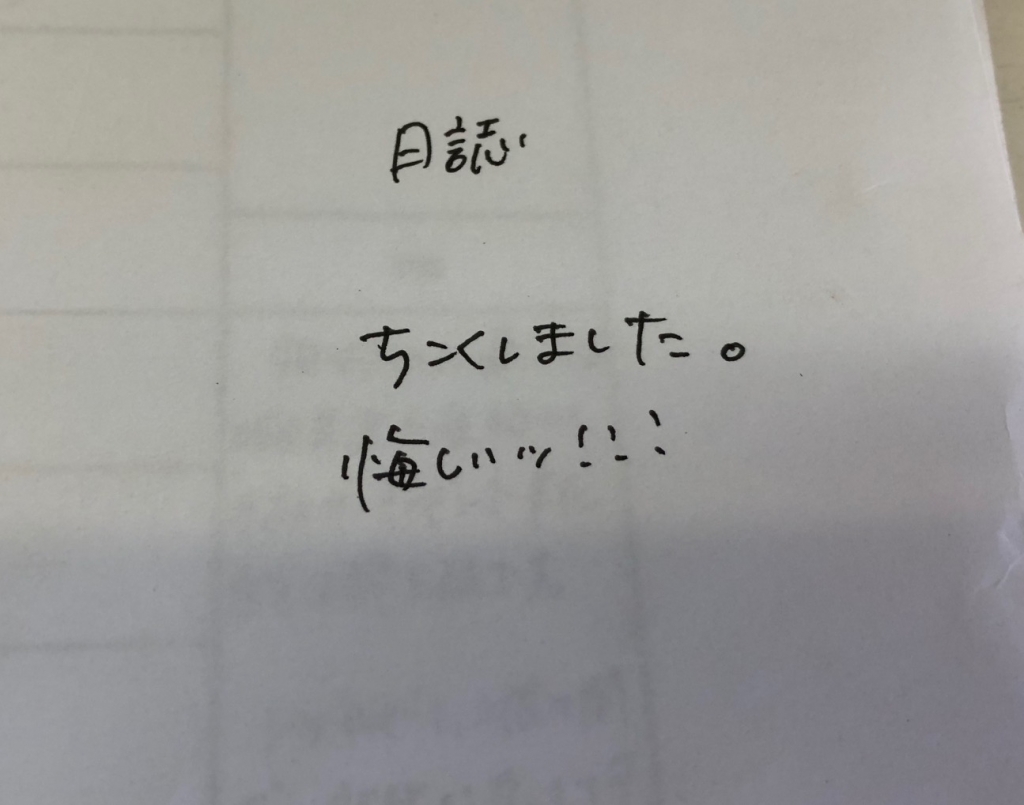 日誌
ちこくしました。
悔しいッ!!!